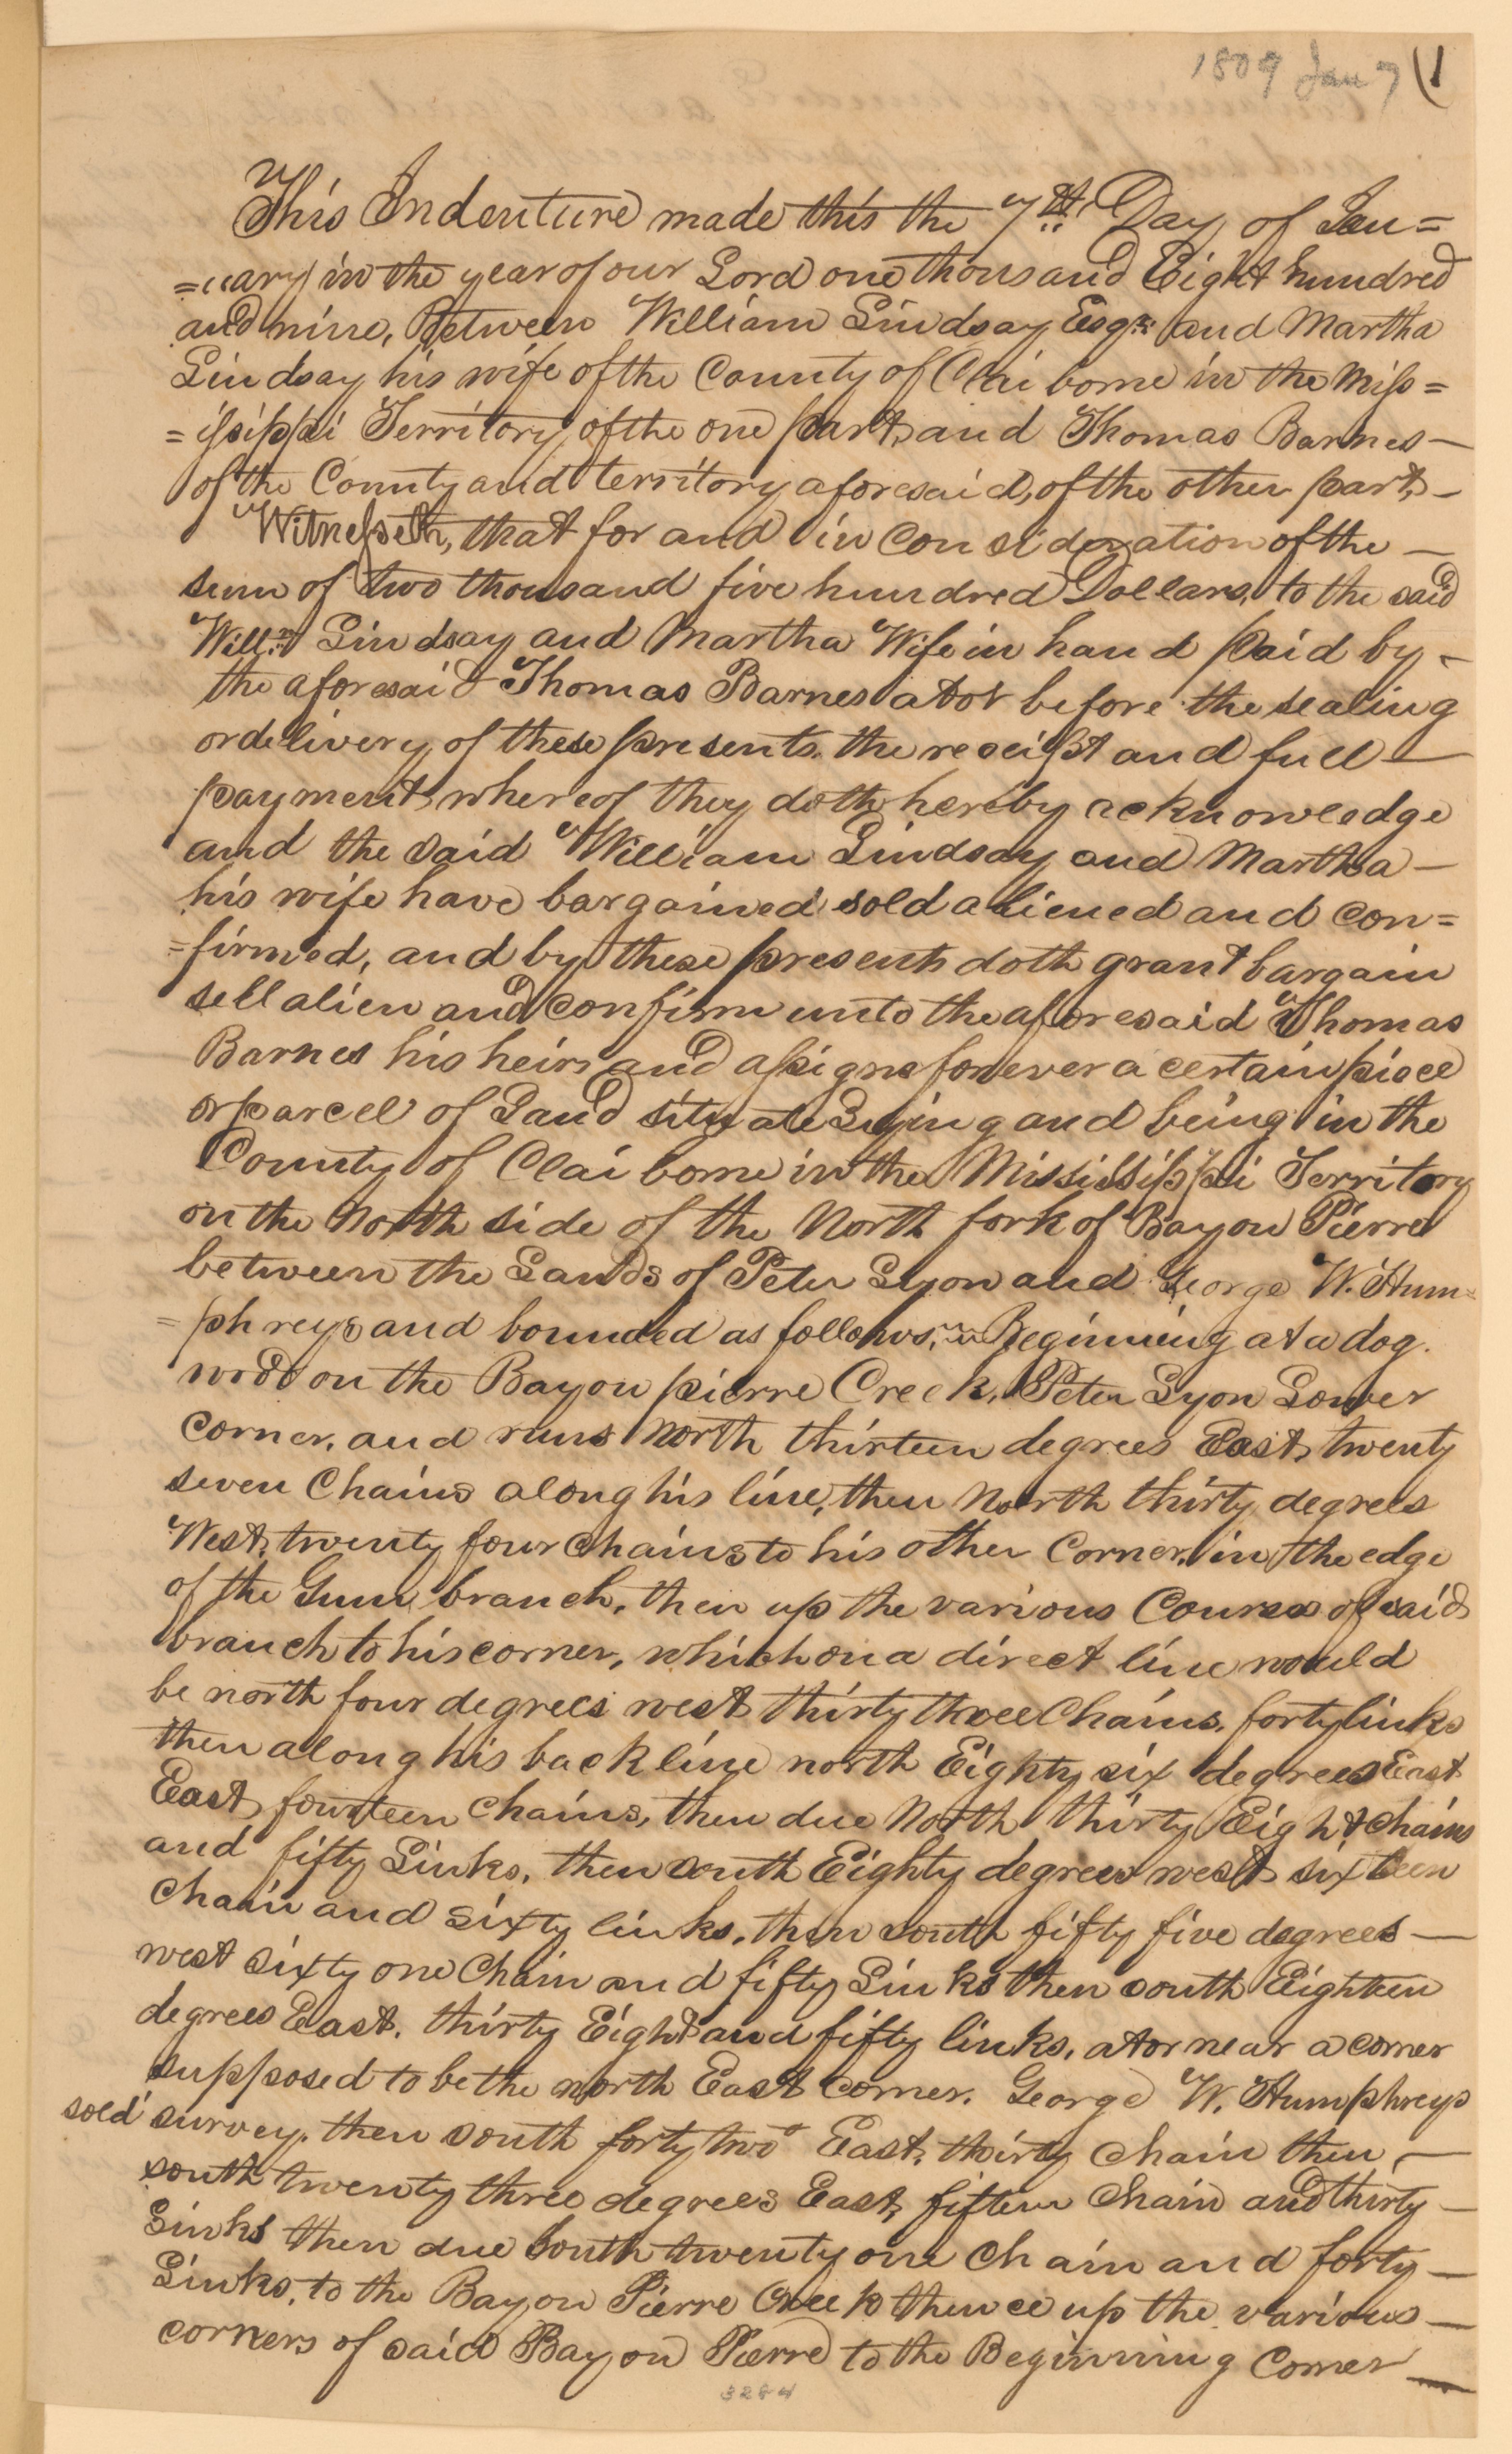 1809 Jan 7 (1
This Indenture made this the 7th Day of Jan=
=uary in the year of our Lord one thousand Eight hundred
and nine, Between William Lindsay Esqr. and Martha
Lindsay his wife of the County of Claiborne in the Miss=
=issippi Territory of the one part, and Thomas Barnes —
of the County and territory aforesaid, of the other part, —
Witnesseth, that for and in Consideration of the —
sum of two thousand five hundred Dollars, to the said
Willm. Lindsay and Martha Wife in hand paid by —
the aforesaid Thomas Barnes at or before the sealing
or delivery of these presents, the receipt and full —
payment whereof they doth hereby acknowledge
and the said William Lindsay and Martha —
his wife have bargained sold aliened and con=
=firmed, and by these presents doth grant bargain
sell alien and confirm unto the aforesaid Thomas
Barnes his heirs and assigns forever a certain piece
or parcel of Land situate Lying and being in the
County of Claiborne in the Mississippi Territory
on the North side of the North fork of Bayou Pierre
between the Lands of Peter Lyon and George W. Hum=
=phreys and bounded as follows, Beginning at a dog.
wood on the Bayou pierre Creek, Peter Lyon Lower
Corner, and runs North thirteen degrees East, twenty
seven Chains along his line, then North thirty degrees
West, twenty four Chains to his other Corner, in the edge
of the Gum branch, then up the various Courses of said
branch to his corner, which on a direct line would
be north four degrees west thirty three Chains, forty links
then along his back line north Eighty six degrees East
East, fourteen Chains, then due North thirty Eight chains
and fifty Links, then south Eighty degrees west, sixteen
Chain and sixty links, then south fifty five degrees —
west sixty one Chain and fifty Links then south Eighteen
degrees East, thirty Eight and fifty links, at or near a corner
supposed to be the north East Corner, George W. Humphreys
sold survey, then south forty two° East, thirty Chain then —
south twenty three degrees East, fifteen Chain and thirty —
Links then due South twenty one Chain and forty —
Links, to the Bayou Pierre Creek thence up the various —
corners of said Bayou Pierre to the Beginning Corner —
3284